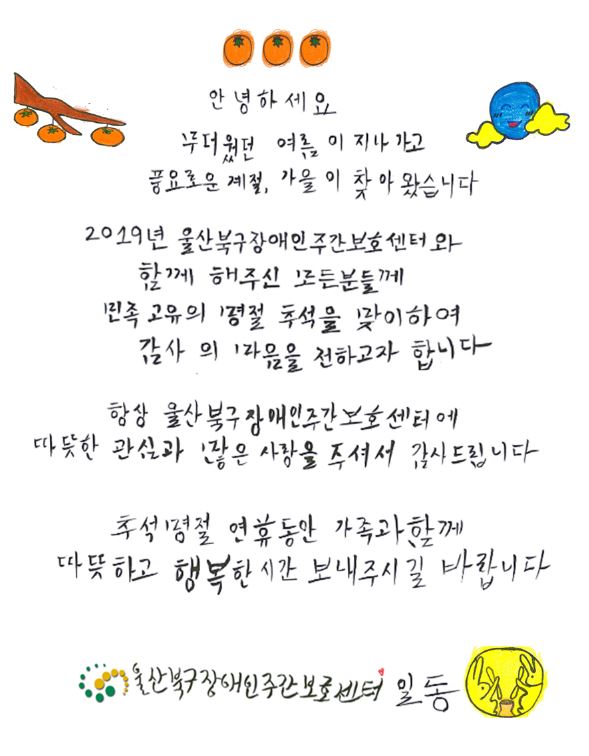 안녕하세요
무더웠던 여름이 지나가고
풍요로운 계절, 가을이 찾아왔습니다
2019년 울산북구장애인주간보호센터와
함께 해주신 모든분들께
민족고유의 명절 추석을 맞이하여
감사의 마음을 전하고자 합니다
항상 울산북구장애인주간보호센터에
따뜻한 관심과 많은 사랑을 주셔서 감사드립니다
추석명절 연휴동안 가족과 함께
따뜻하고 행복한 시간 보내주시길 바랍니다
울산북구장애인주간보호센터 일동